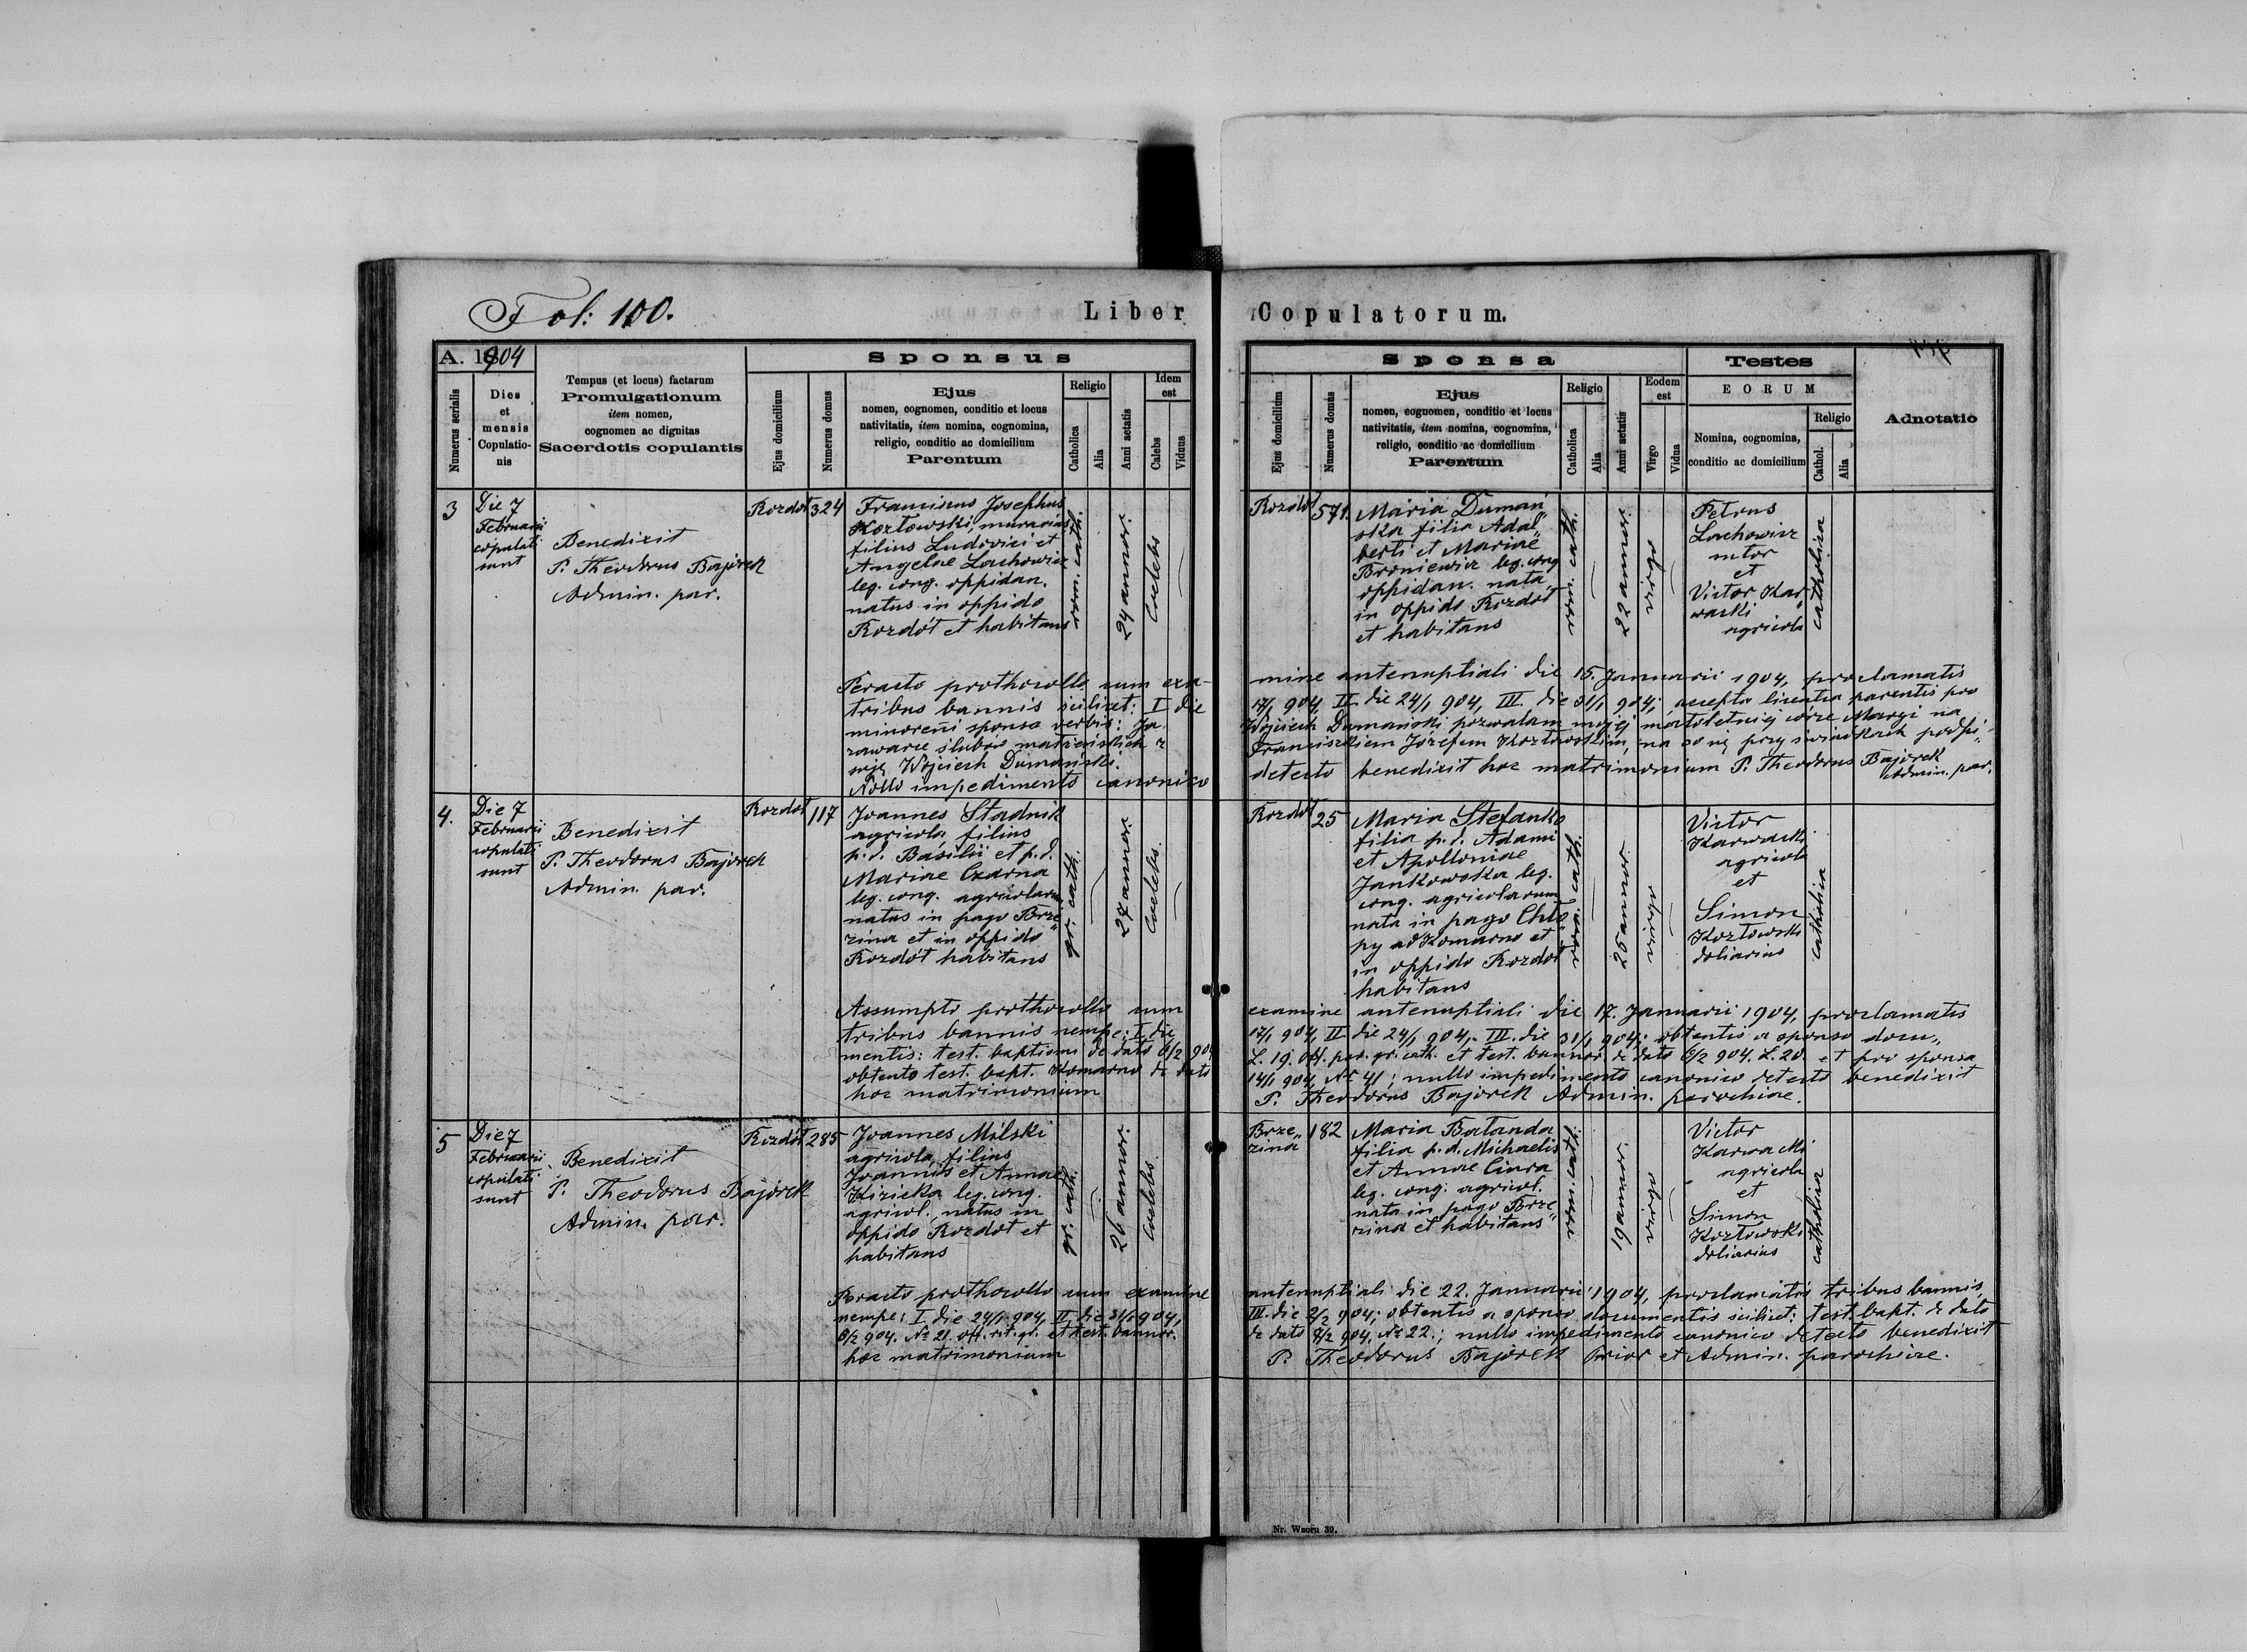 Fol: 100.
Liber Copulatorum.
A. 1904
Numerus serialis
Dies
et
mensis
Copulatio-
nis
Tempus (et locus) factarum
Promulgationum
item nomen,
cognomen ac dignitas
Sacerdotis copulantis
Sponsus
Ejus domicilium
Numerus domus
Ejus
nomen, cognomen, conditio et locus
nativitatis, item nomina, cognomina,
religio, conditio ac domicilium
Parentum
Religio
Catholica
Alia
Anni aetatis
Idem
est
Calebs
Viduus
Sponsa
Ejus domicilium
Numerus domus
Ejus
nomen, cognomen, conditio et locus
nativitatis, item nomina, cognomina,
religio, conditio ac domicilium
Parentum
Religio
Catholica
Alia
Anni aetatis
Eodem
est
Virgo
Vidua
Testes
EORUM
Nomina, cognomina,
conditio ac domicilium
Religio
Cathol.
Alia
Adnotatio
3
Die 7
Februarii
copulati
sunt
Benedixit
P. Theodorus Bajorek
Admin. par.
Rozdół
324
Franciscus Josephus
Kozłowski, murarius
filius Ludovici et
Angelae Lachowicz
leg. cong. oppidan.
natus in oppido
Rozdół et habitans
rom. cath.
24 annor.
Coelebs
Rozdół
571.
Maria Dumań„
ska filia Adal„
berti et Mariae
Broniewicz leg. cong
oppidan. nata
in oppido Rozdół
et habitans
rom. cath.
22 annor.
virgo
Petrus
Lachowicz
sutor
et
Victor Kar„
wacki
agricola
catholica
Peracto prothocollo cum exa-
mine antenuptiali die 15. Januarii 1904, proclamatis
tribus bannis scilicet: I die
17/1 904, II die 24/1 904, III. die 31/1 904; accepta licentia parentis pro
minoreni sponsa verbis: Ja
Wojciech Dumański pozwalam mojej małoletniej córce Maryi na
zawarcie ślubów małżeńskich z
Franciszkiem Józefem Kozłowskim, na co się przy świadkach podpi„
suję Wojciech Dumański.
Nullo impedimento canonico
detecto benedixit hoc matrimonium P. Theodorus Bajorek
Admin. par.
4.
Die 7
Februarii
copulati
sunt
Benedixit
P. Theodorus Bajorek
Admin. par.
Rozdół
117
Joannes Stadnik
agricola, filius
p. d. Basilii et p. d.
Mariae Czarna
leg. cong. agricolarum
natus in pago Brze„
zina et in oppido
Rozdół habitans
gr. cath.
27 annor.
Coelebs
Rozdół
25
Maria Stefanko
filia p. d. Adami
et Apolloniae
Jankowska leg.
cong. agricolarum
nata in pago Chło„
py ad Komarno et
in oppido Rozdół
habitans
rom. cath.
25 annor.
virgo
Victor
Karwacki
agricola
et
Simon
Kozłowski
doliarius
catholica
Assumpto prothocollo cum
examine antenuptiali die 17. Januarii 1904, proclamatis
tribus bannis nempe: I. die
17/1 904, II die 24/1 904, III. die 31/1 904; obtentis a sponso docu„
mentis: test. baptismi de dato 6/2 904
L. 19. Off. par. gr. cath. et test. bannor. de dato 6/2 904. L. 20. et pro sponsa
obtento test. bapt. Komarno de dato
14/1 904, № 41; nullo impedimento canonico detecto benedixit
hoc matrimonium
P. Theodorus Bajorek Admin. parochiae.
5
Die 7
Februarii
copulati
sunt
Benedixit
P. Theodorus Bajorek
Admin. par.
Rozdół
285
Joannes Milski
agricola, filius
Joannis et Annae
Kiricka leg. cong.
agricol., natus in
oppido Rozdół et
habitans
gr. cath.
26 annor.
Coelebs
Brze„
zina
182
Maria Bałanda
filia p. d. Michaelis
et Annae Ciura
leg. cong. agricol.
nata in pago Brze„
zina et habitans
rom. cath.
19 annor.
virgo
Victor
Karwacki
agricola
et
Simon
Kozłowski
doliarius
catholica
Peracto prothocollo cum examine
antenuptiali die 22. Januarii 1904, proclamatis tribus bannis,
nempe: I die 24/1 904, II. die 31/1 904,
III. die 2/2 904; obtentis a sponso documentis scilicet: test. bapt. de dato
6/2 904. № 21. off. rit. gr. et test. bannor.
de dato 6/2 904, № 22.; nullo impedimento canonico detecto benedixit
hoc matrimonium
P. Theodorus Bajorek Prior et Admin. parochiae.
Nr. Wzoru 39.